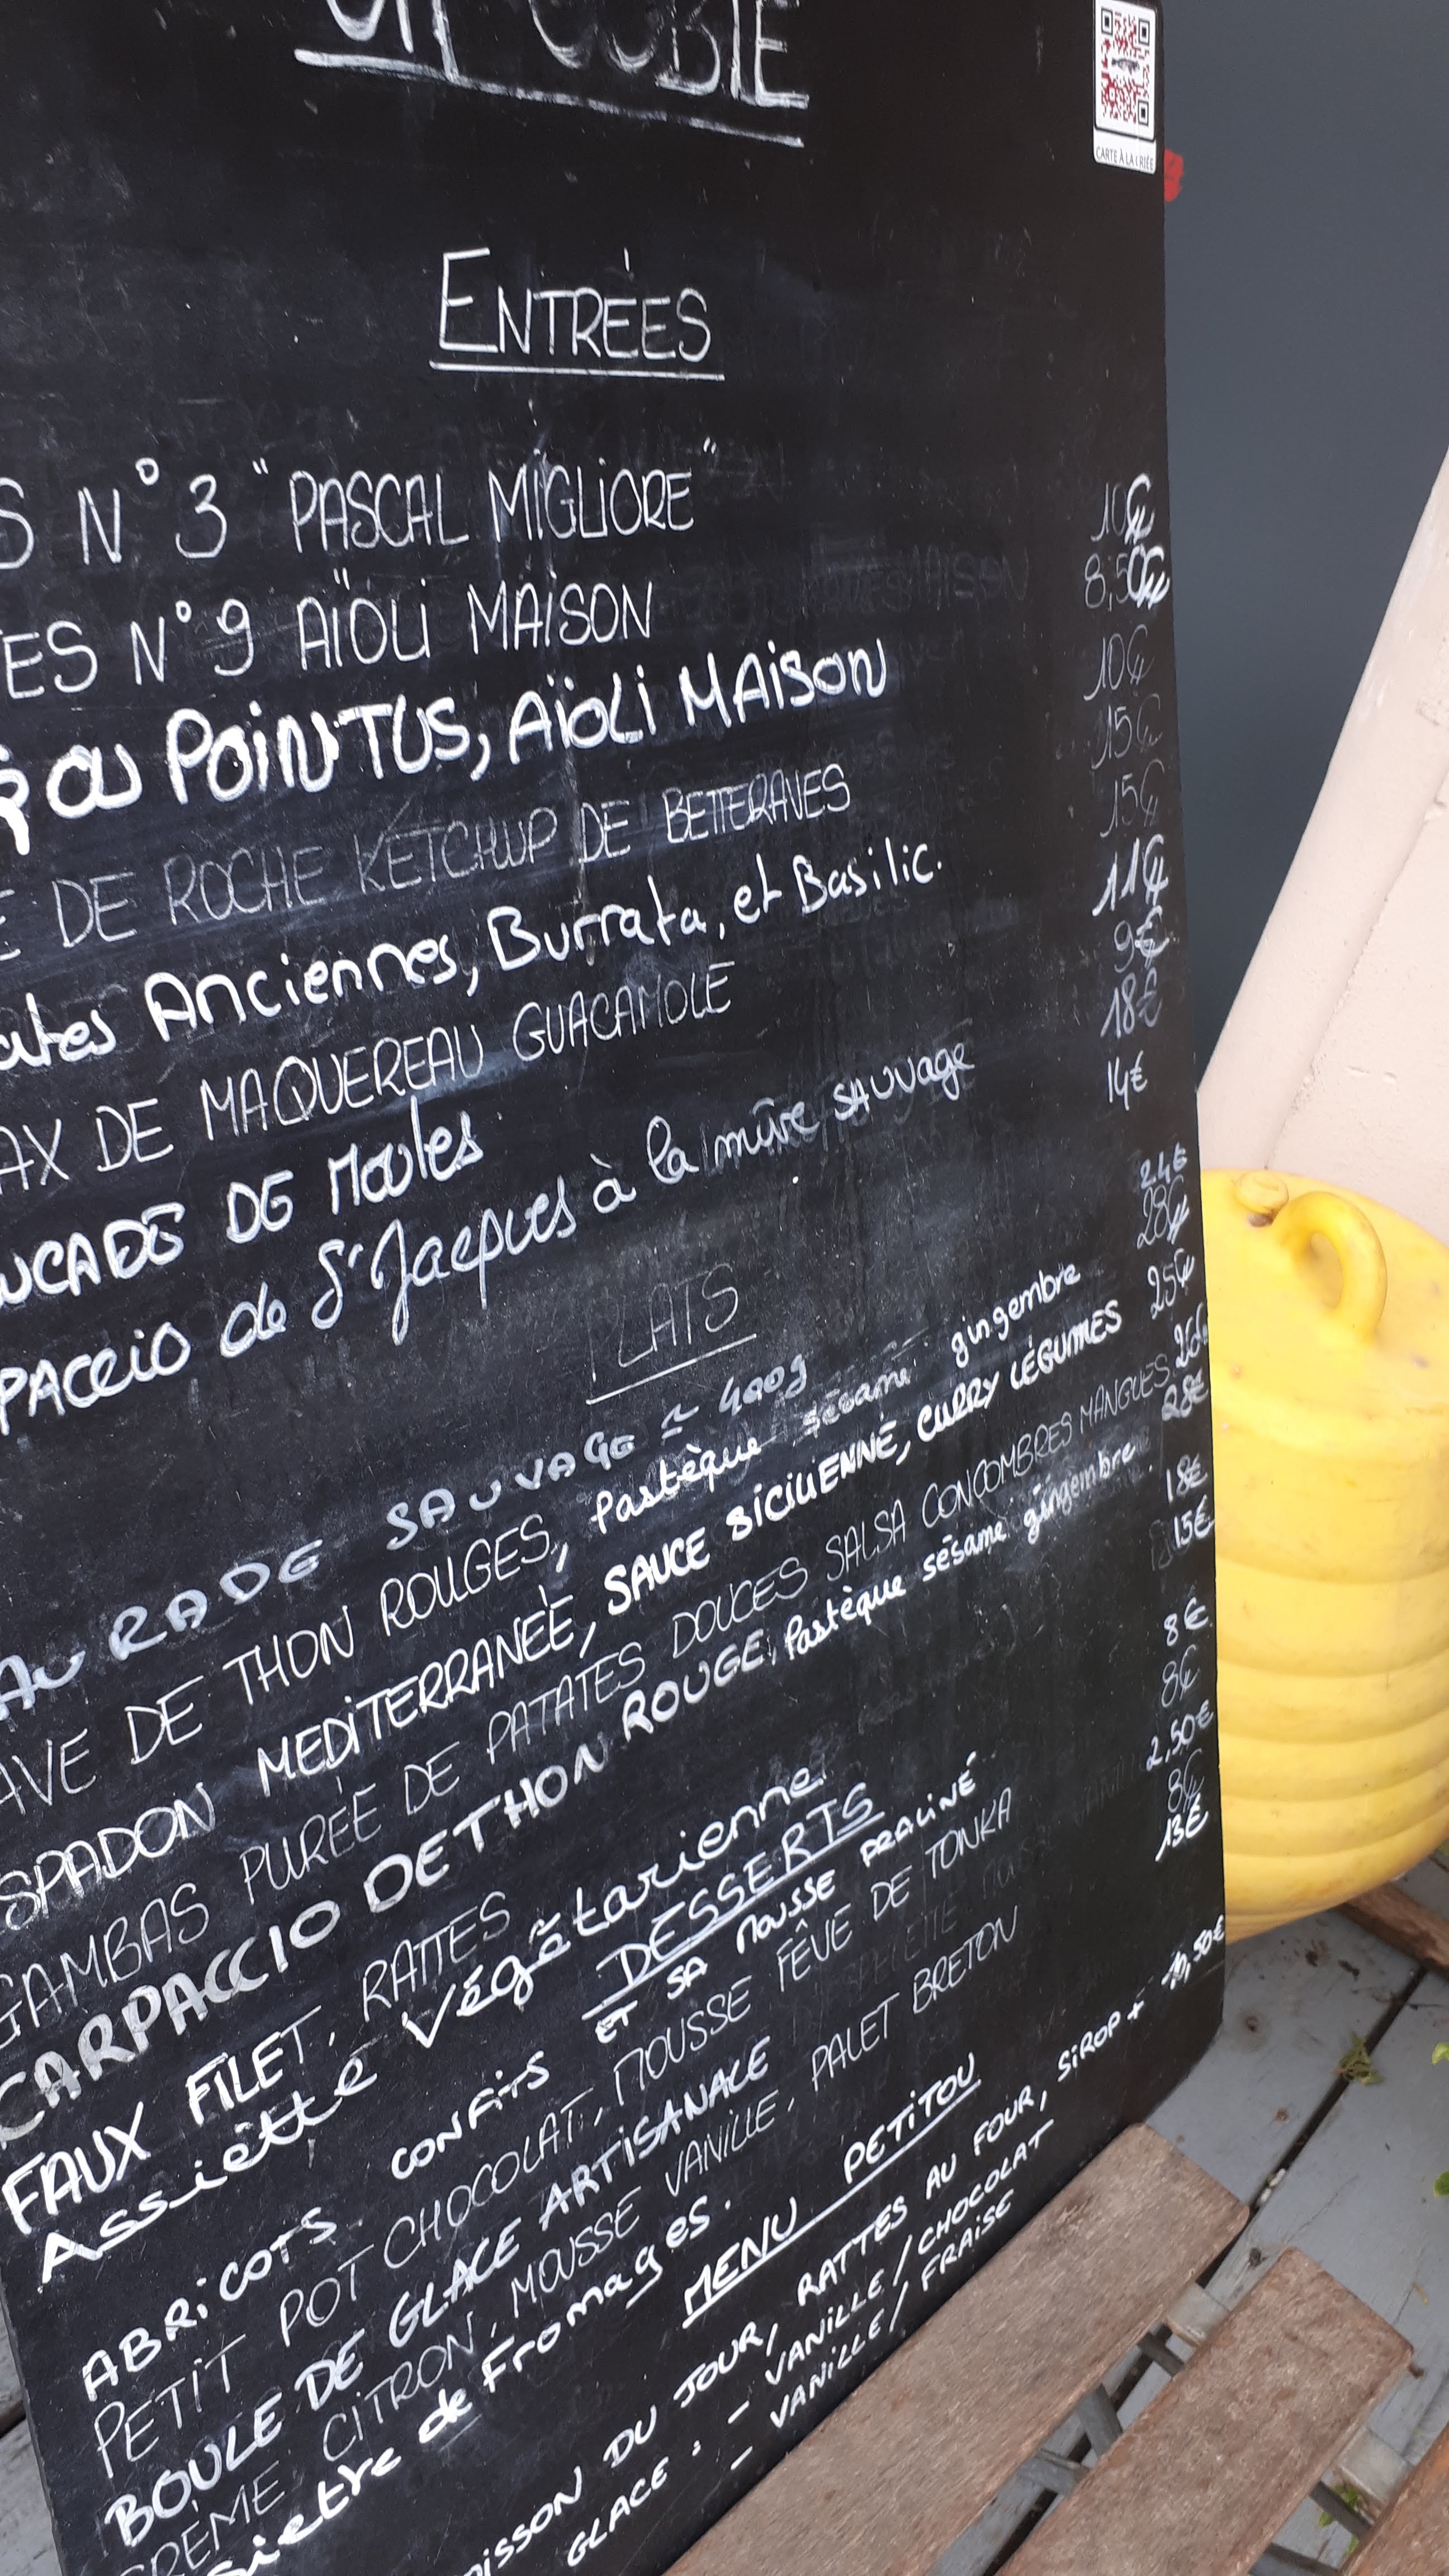 CARTE À LA CRIÉE
ENTRÉES
S N°3 "PASCAL MIGLIORE" 10€
ES N°9 AÏOLI MAISON 8,50€
OU POINTUS, AÏOLI MAISON 10€
E DE ROCHE KETCHUP DE BETTERAVES 15€
ates Anciennes, Burrata, et Basilic. 15€
AX DE MAQUEREAU GUACAMOLE 11€
UCADE DE Moules 9€
PACCIO de St Jacques à la mûre SAUVage 18€
14€
LATS
AURADE SAUVAGE ≈ 400g 24€
AVE DE THON ROUGES, Pastèque sésame gingembre 28€
SPADON MEDITERRANÉE, SAUCE SICILIENNE, CURRY LÉGUMES 25€
GAMBAS PURÉE DE PATATES DOUCES SALSA CONCOMBRES MANGUES 26€
CARPACCIO DE THON ROUGE, Pastèque sésame gingembre. 28€
FAUX FILET, RATTES 18€
Assiette Végétarienne 15€
DESSERTS
ABRICOTS CONFITS ET SA MOUSSE PRALINÉ 8€
PETIT POT CHOCOLAT, MOUSSE FÊVE DE TONKA 8€
BOULE DE GLACE ARTISANALE 2,50€
CRÈME CITRON, MOUSSE VANILLE, PALET BRETON 8€
siette de Fromages. 13€
MENU PETITOU
OISSON DU JOUR, RATTES AU FOUR, SIROP + 10,50€
GLACE : - VANILLE/CHOCOLAT
- VANILLE/FRAISE